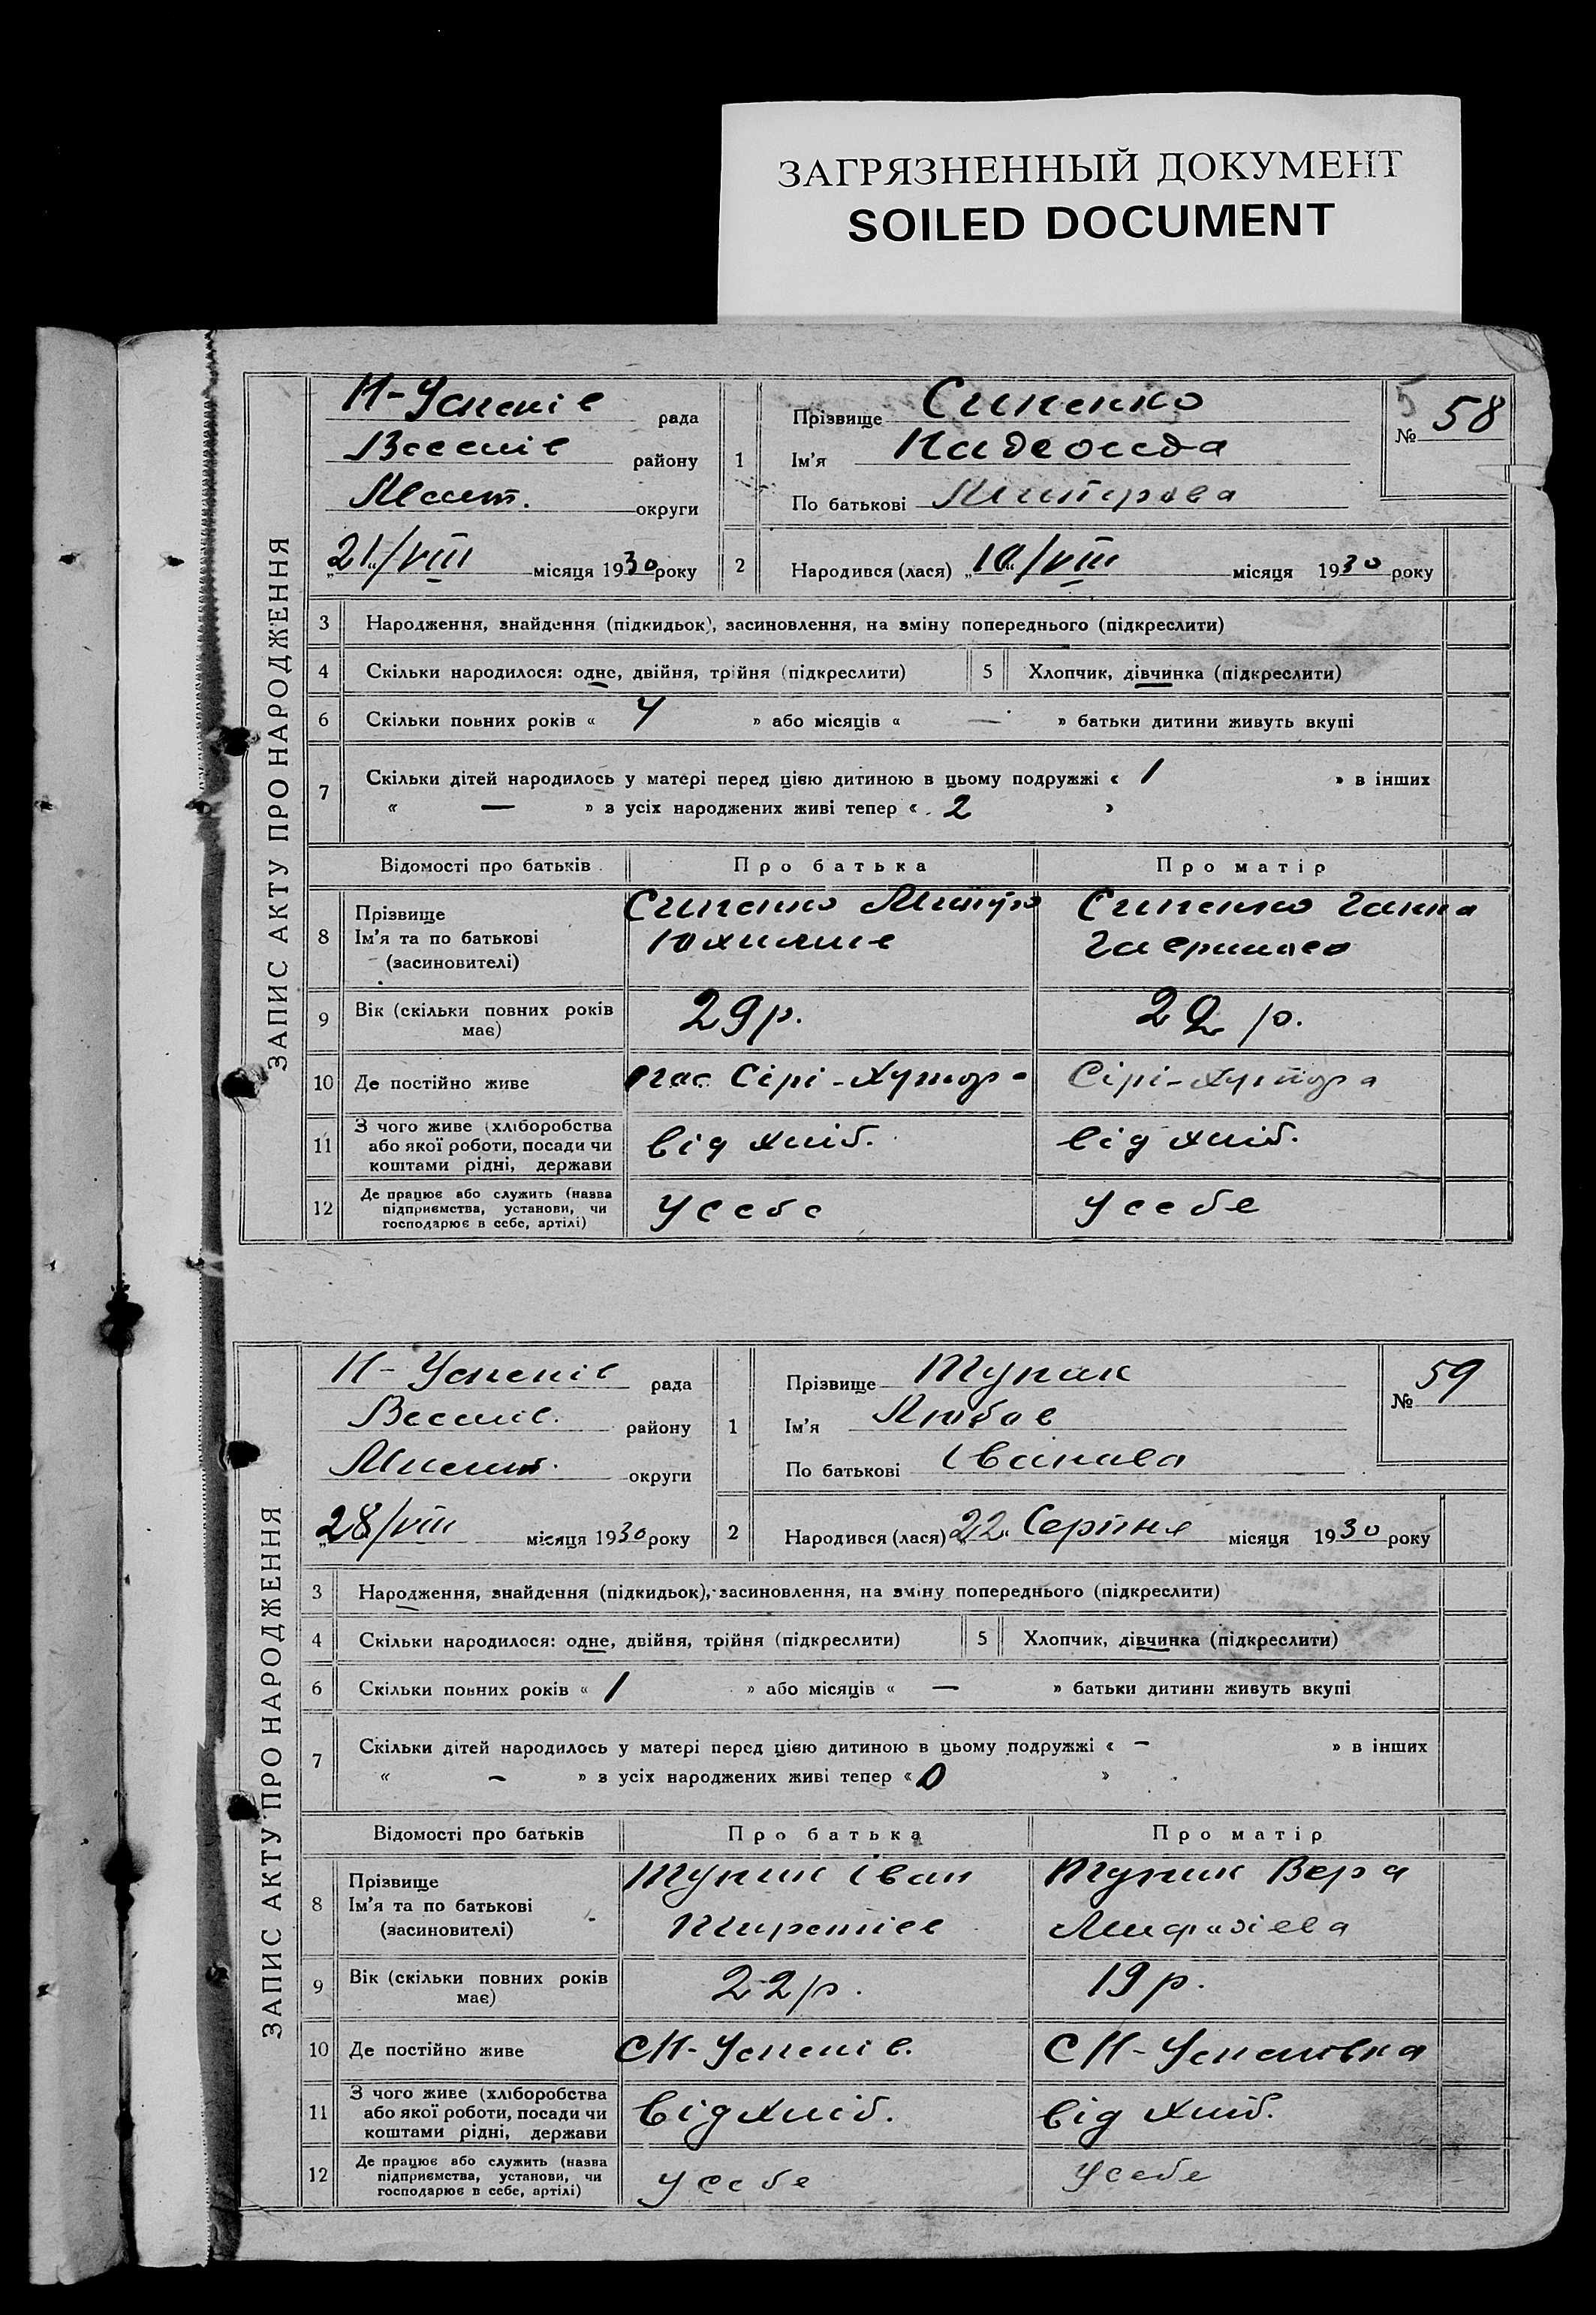 ЗАГРЯЗНЕННЫЙ ДОКУМЕНТ
SOILED DOCUMENT
ЗАПИС АКТУ ПРО НАРОДЖЕННЯ
Н-Успенів рада
Веселів району
Меліт. округи
„21“/VIII місяця 1930 року
1
Прізвище Сипенко
Ім'я Надеожда
По батькові Митрова
№ 58
2
Народився (лася) „10“/VIII місяця 1930 року
3 Народження, знайдення (підкидьок), засиновлення, на зміну попереднього (підкреслити)
4 Скільки народилося: одне, двійня, трійня (підкреслити) 5 Хлопчик, дівчинка (підкреслити)
6 Скільки повних років « 4 » або місяців « — » батьки дитини живуть вкупі
7 Скільки дітей народилось у матері перед цією дитиною в цьому подружжі « 1 » в інших
« — » з усіх народжених живі тепер « 2 »
Відомості про батьків Про батька Про матір
8 Прізвище
Ім'я та по батькові
(засиновителі)
Сипенко Митро
Юхимів
Сипенко Ганна
Гаврилова
9 Вік (скільки повних років
має)
29 р. 22 р.
10 Де постійно живе Сірі-Хутора Сірі-Хутора
11 З чого живе (хліборобства
або якої роботи, посади чи
коштами рідні, держави
від хліб. від хліб.
12 Де працює або служить (назва
підприємства, установи, чи
господарює в себе, артілі)
У себе У себе
ЗАПИС АКТУ ПРО НАРОДЖЕННЯ
Н-Успенів рада
Веселів. району
Меліт. округи
„28/VIII місяця 1930 року
1
Прізвище Тупик
Ім'я Любов
По батькові Іванова
№ 59
2
Народився (лася) „22“ Серпня місяця 1930 року
3 Народження, знайдення (підкидьок), засиновлення, на зміну попереднього (підкреслити)
4 Скільки народилося: одне, двійня, трійня (підкреслити) 5 Хлопчик, дівчинка (підкреслити)
6 Скільки повних років « 1 » або місяців « — » батьки дитини живуть вкупі
7 Скільки дітей народилось у матері перед цією дитиною в цьому подружжі « - » в інших
« - » з усіх народжених живі тепер « 0 »
Відомості про батьків Про батька Про матір
8 Прізвище
Ім'я та по батькові
(засиновителі)
Тупик Іван
Тупик Вера
9 Вік (скільки повних років
має)
22 р. 19 р.
10 Де постійно живе С Н-Успенів. С Н-Успеновка
11 З чого живе (хліборобства
або якої роботи, посади чи
коштами рідні, держави
від хліб. від хліб.
12 Де працює або служить (назва
підприємства, установи, чи
господарює в себе, артілі)
У себе У себе